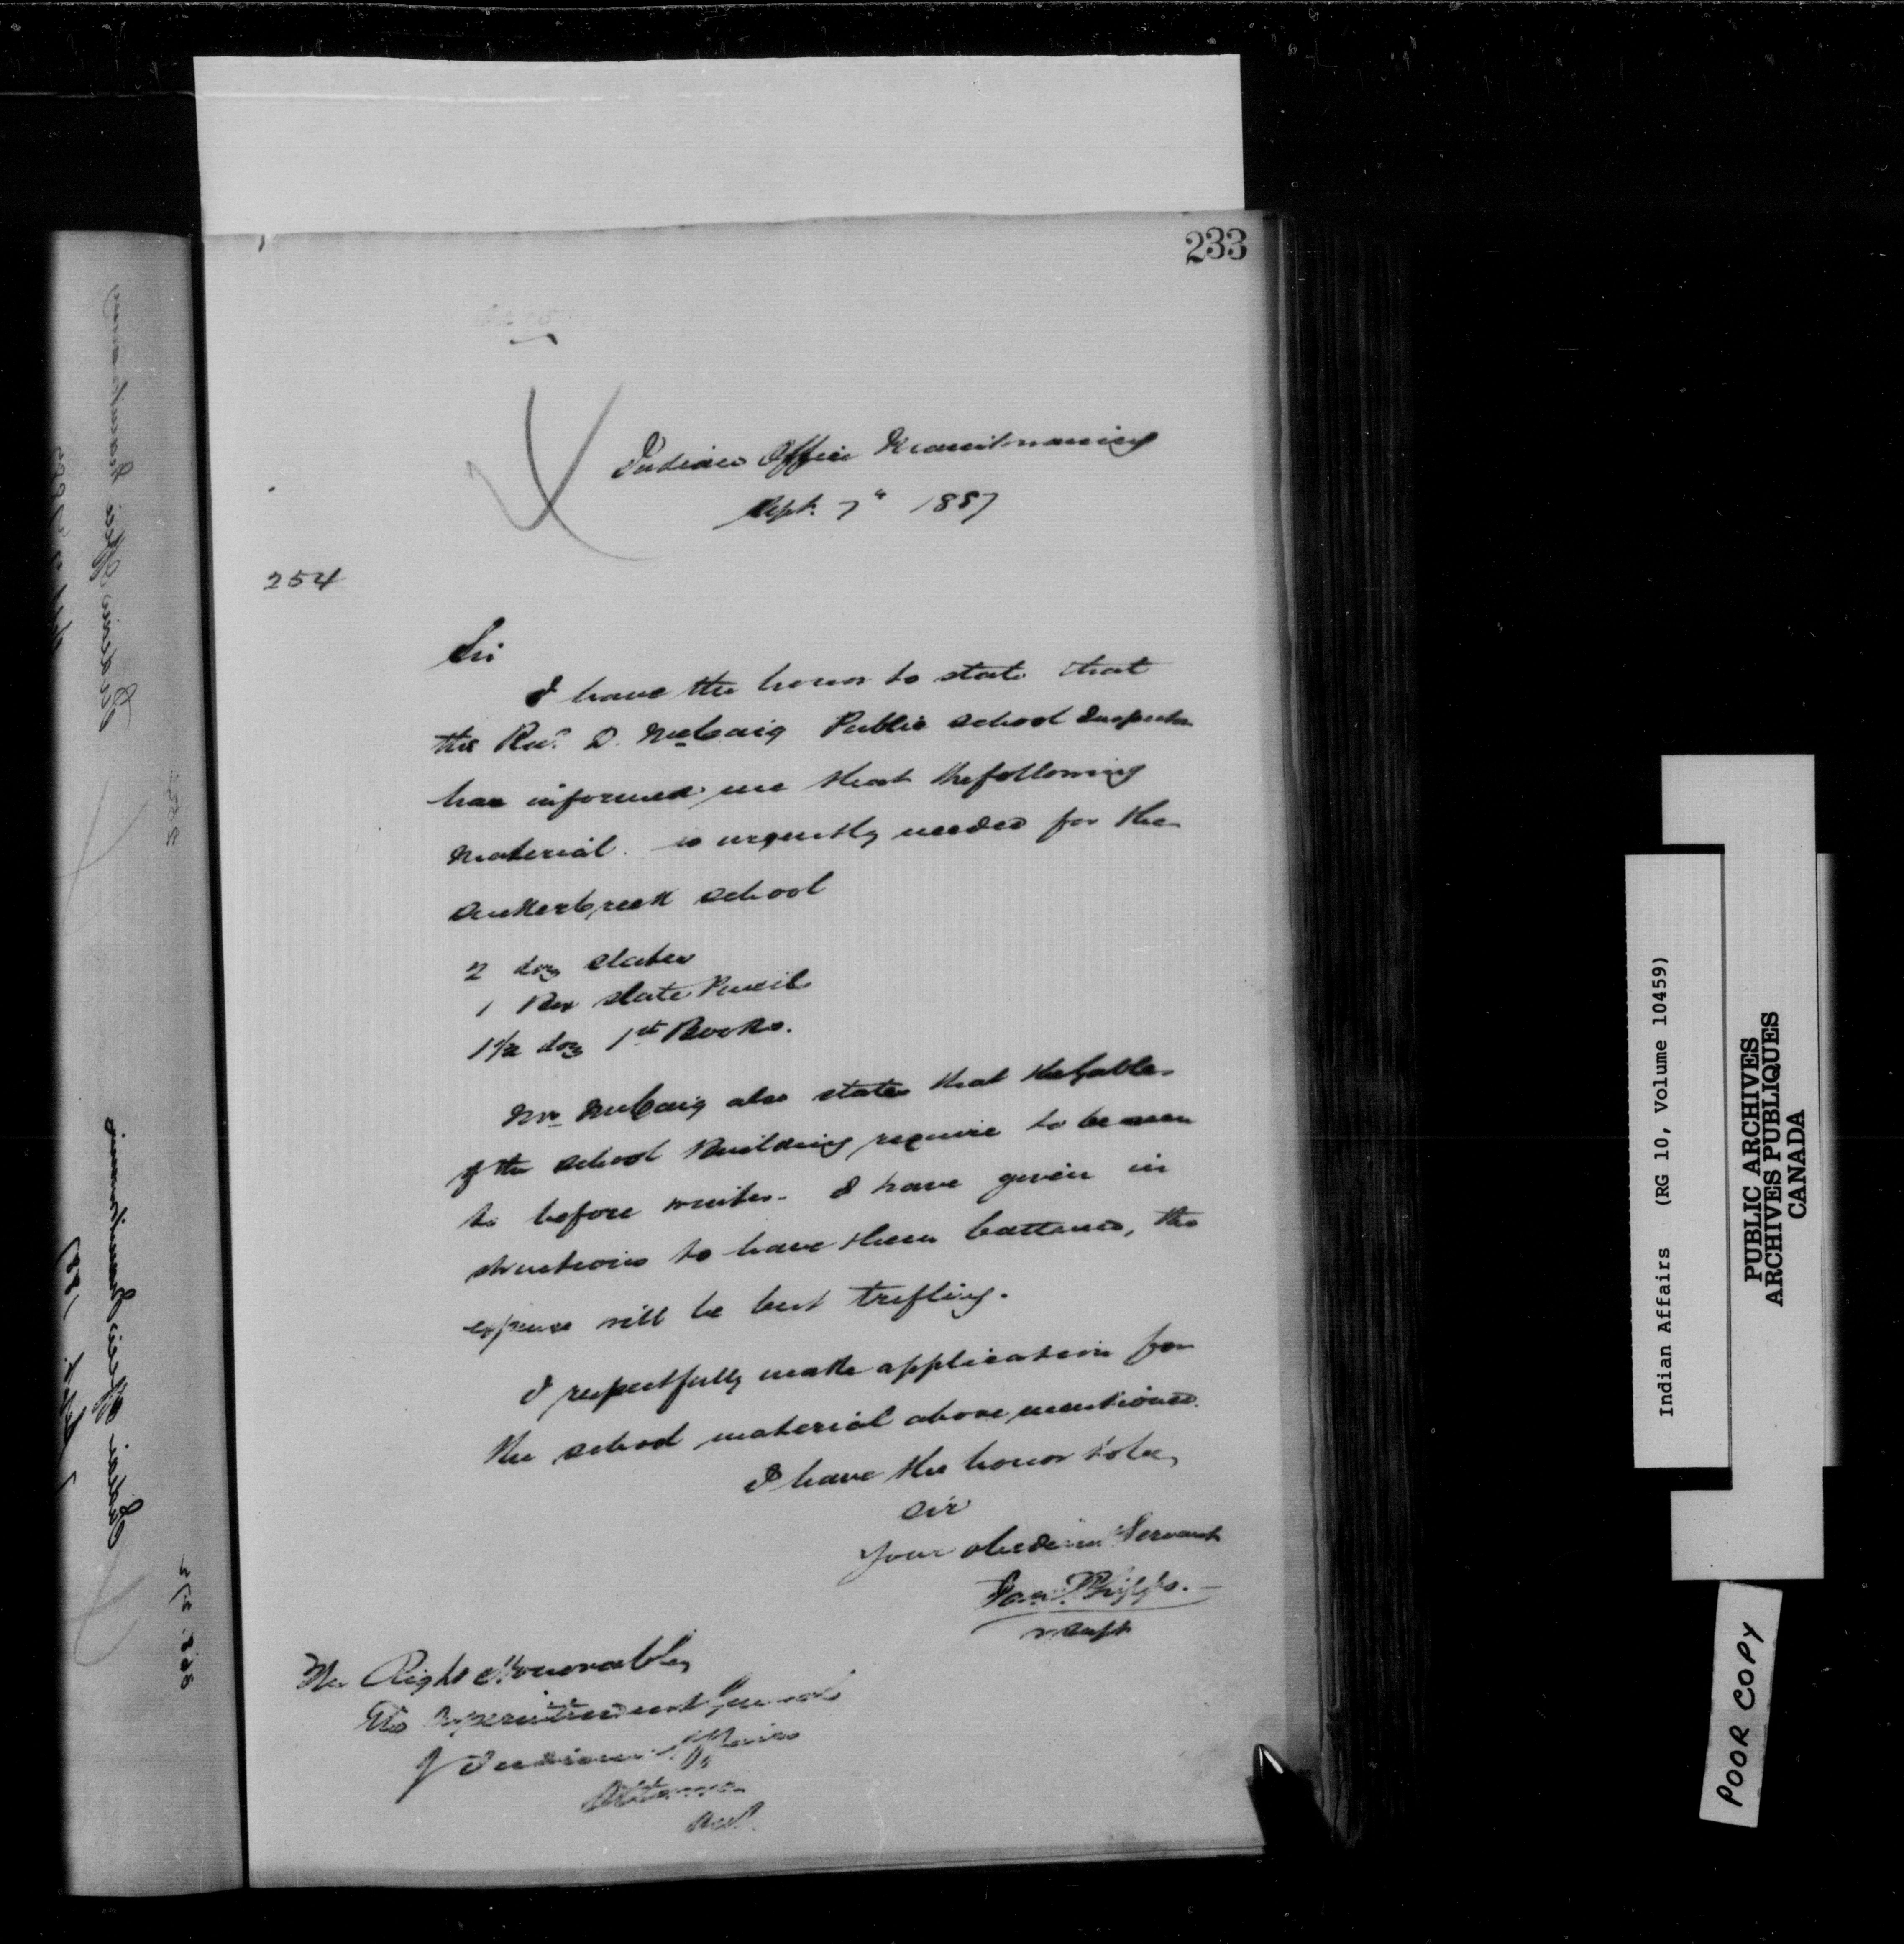 233
Indian Office Manitowaning
Sept. 7" 1887
254
Sir
I have the honor to state that
the Revd. D. McCaig Public School Inspector
has informed me that the following
Material is urgently needed for the
Suckercreek School
2 doz Slates
1 Box Slate Pencils
1 1/2 doz 1st Books.
Mr McCaig also states that the Gables
of the School Building require to be seen
to before winter. I have given in
structions to have them battened, the
expense will be but trifling.
I respectfully make application for
the school material above mentioned.
I have the honor to be,
Sir
Your obedient Servant
Phipps.
V. Supt
The Right Honorable,
The Superintendent General
of Indian Affairs
Ottawa
Ont.
Indian Office Manitowaning
Indian Office Manitowaning
Indian Affairs (RG 10, Volume 10459)
PUBLIC ARCHIVES
ARCHIVES PUBLIQUES
CANADA
POOR COPY